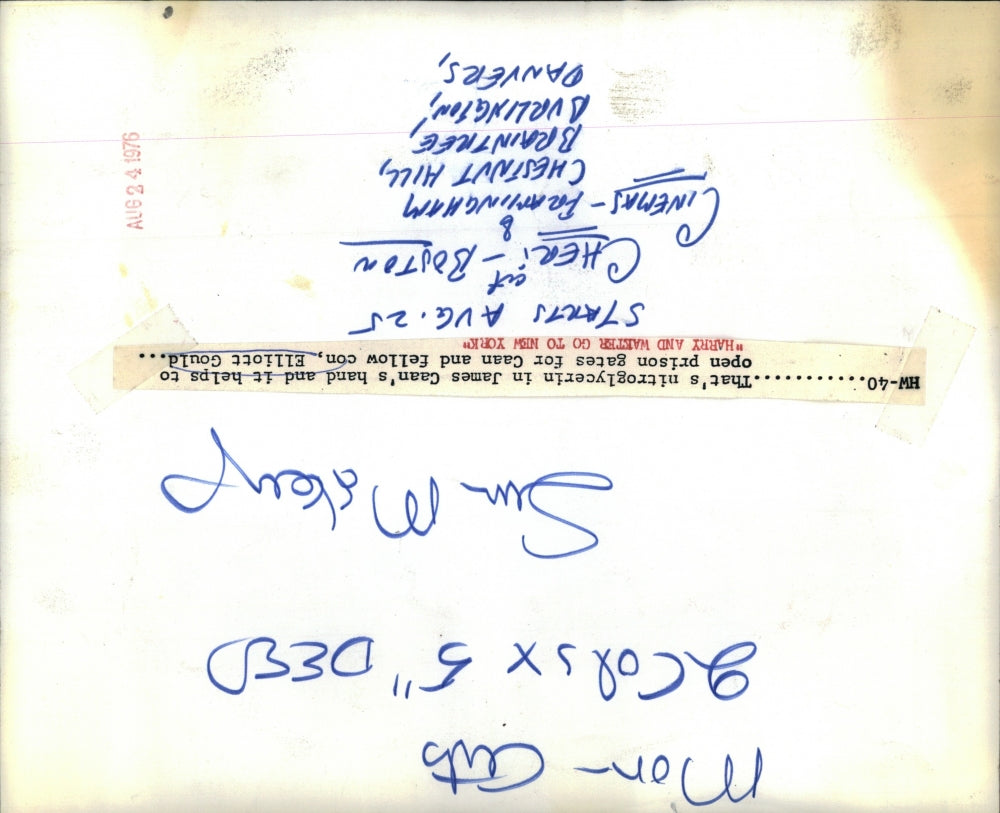 Mon- Arts
2 Cols x 5" DEEP
Sun Makeup
HW-40.............That's nitroglycerin in James Caan's hand and it helps to
open prison gates for Caan and fellow con, Elliott Gould...
"HARRY AND WALTER GO TO NEW YORK"
STARTS AUG. 25
at
CHERI - BOSTON
&
CINEMAS - FRAMINGHAM
CHESTNUT HILL,
BRAINTREE,
BURLINGTON,
DANVERS,
AUG 24 1976